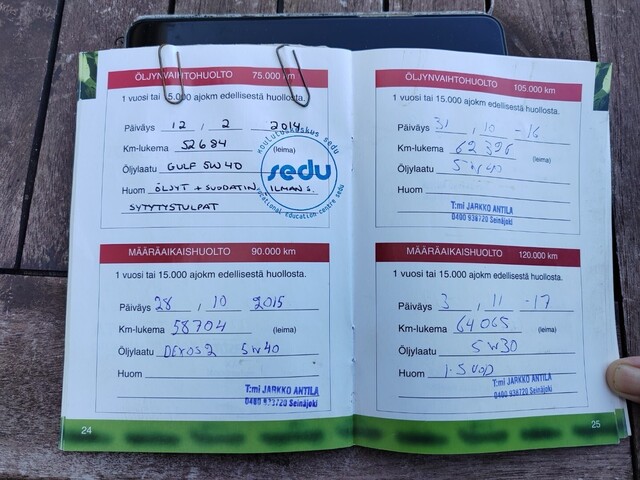 ÖLJYNVAIHTOHUOLTO 75.000 km
1 vuosi tai 15.000 ajokm edellisestä huollosta.
Päiväys 12 , 2 2014
Km-lukema 52684 (leima)
Öljylaatu GULF 5W40
Huom ÖLJYT + SUODATIN ILMANS.
SYTYTYSTULPAT
koulutuskeskus sedu
sedu
vocational education centre sedu
MÄÄRÄAIKAISHUOLTO 90.000 km
1 vuosi tai 15.000 ajokm edellisestä huollosta.
Päiväys 28 , 10 2015
Km-lukema 58704 (leima)
Öljylaatu DEXOS2 5W40
Huom
T:mi JARKKO ANTILA
0400 938720 Seinäjoki
24
ÖLJYNVAIHTOHUOLTO 105.000 km
1 vuosi tai 15.000 ajokm edellisestä huollosta.
Päiväys 31 , 10 -16
Km-lukema 62396 (leima)
Öljylaatu 5W40
Huom
T:mi JARKKO ANTILA
0400 938720 Seinäjoki
MÄÄRÄAIKAISHUOLTO 120.000 km
1 vuosi tai 15.000 ajokm edellisestä huollosta.
Päiväys 3 , 11 -17
Km-lukema 64065 (leima)
Öljylaatu 5W30
Huom
T:mi JARKKO ANTILA
0400 938720 Seinäjoki
25